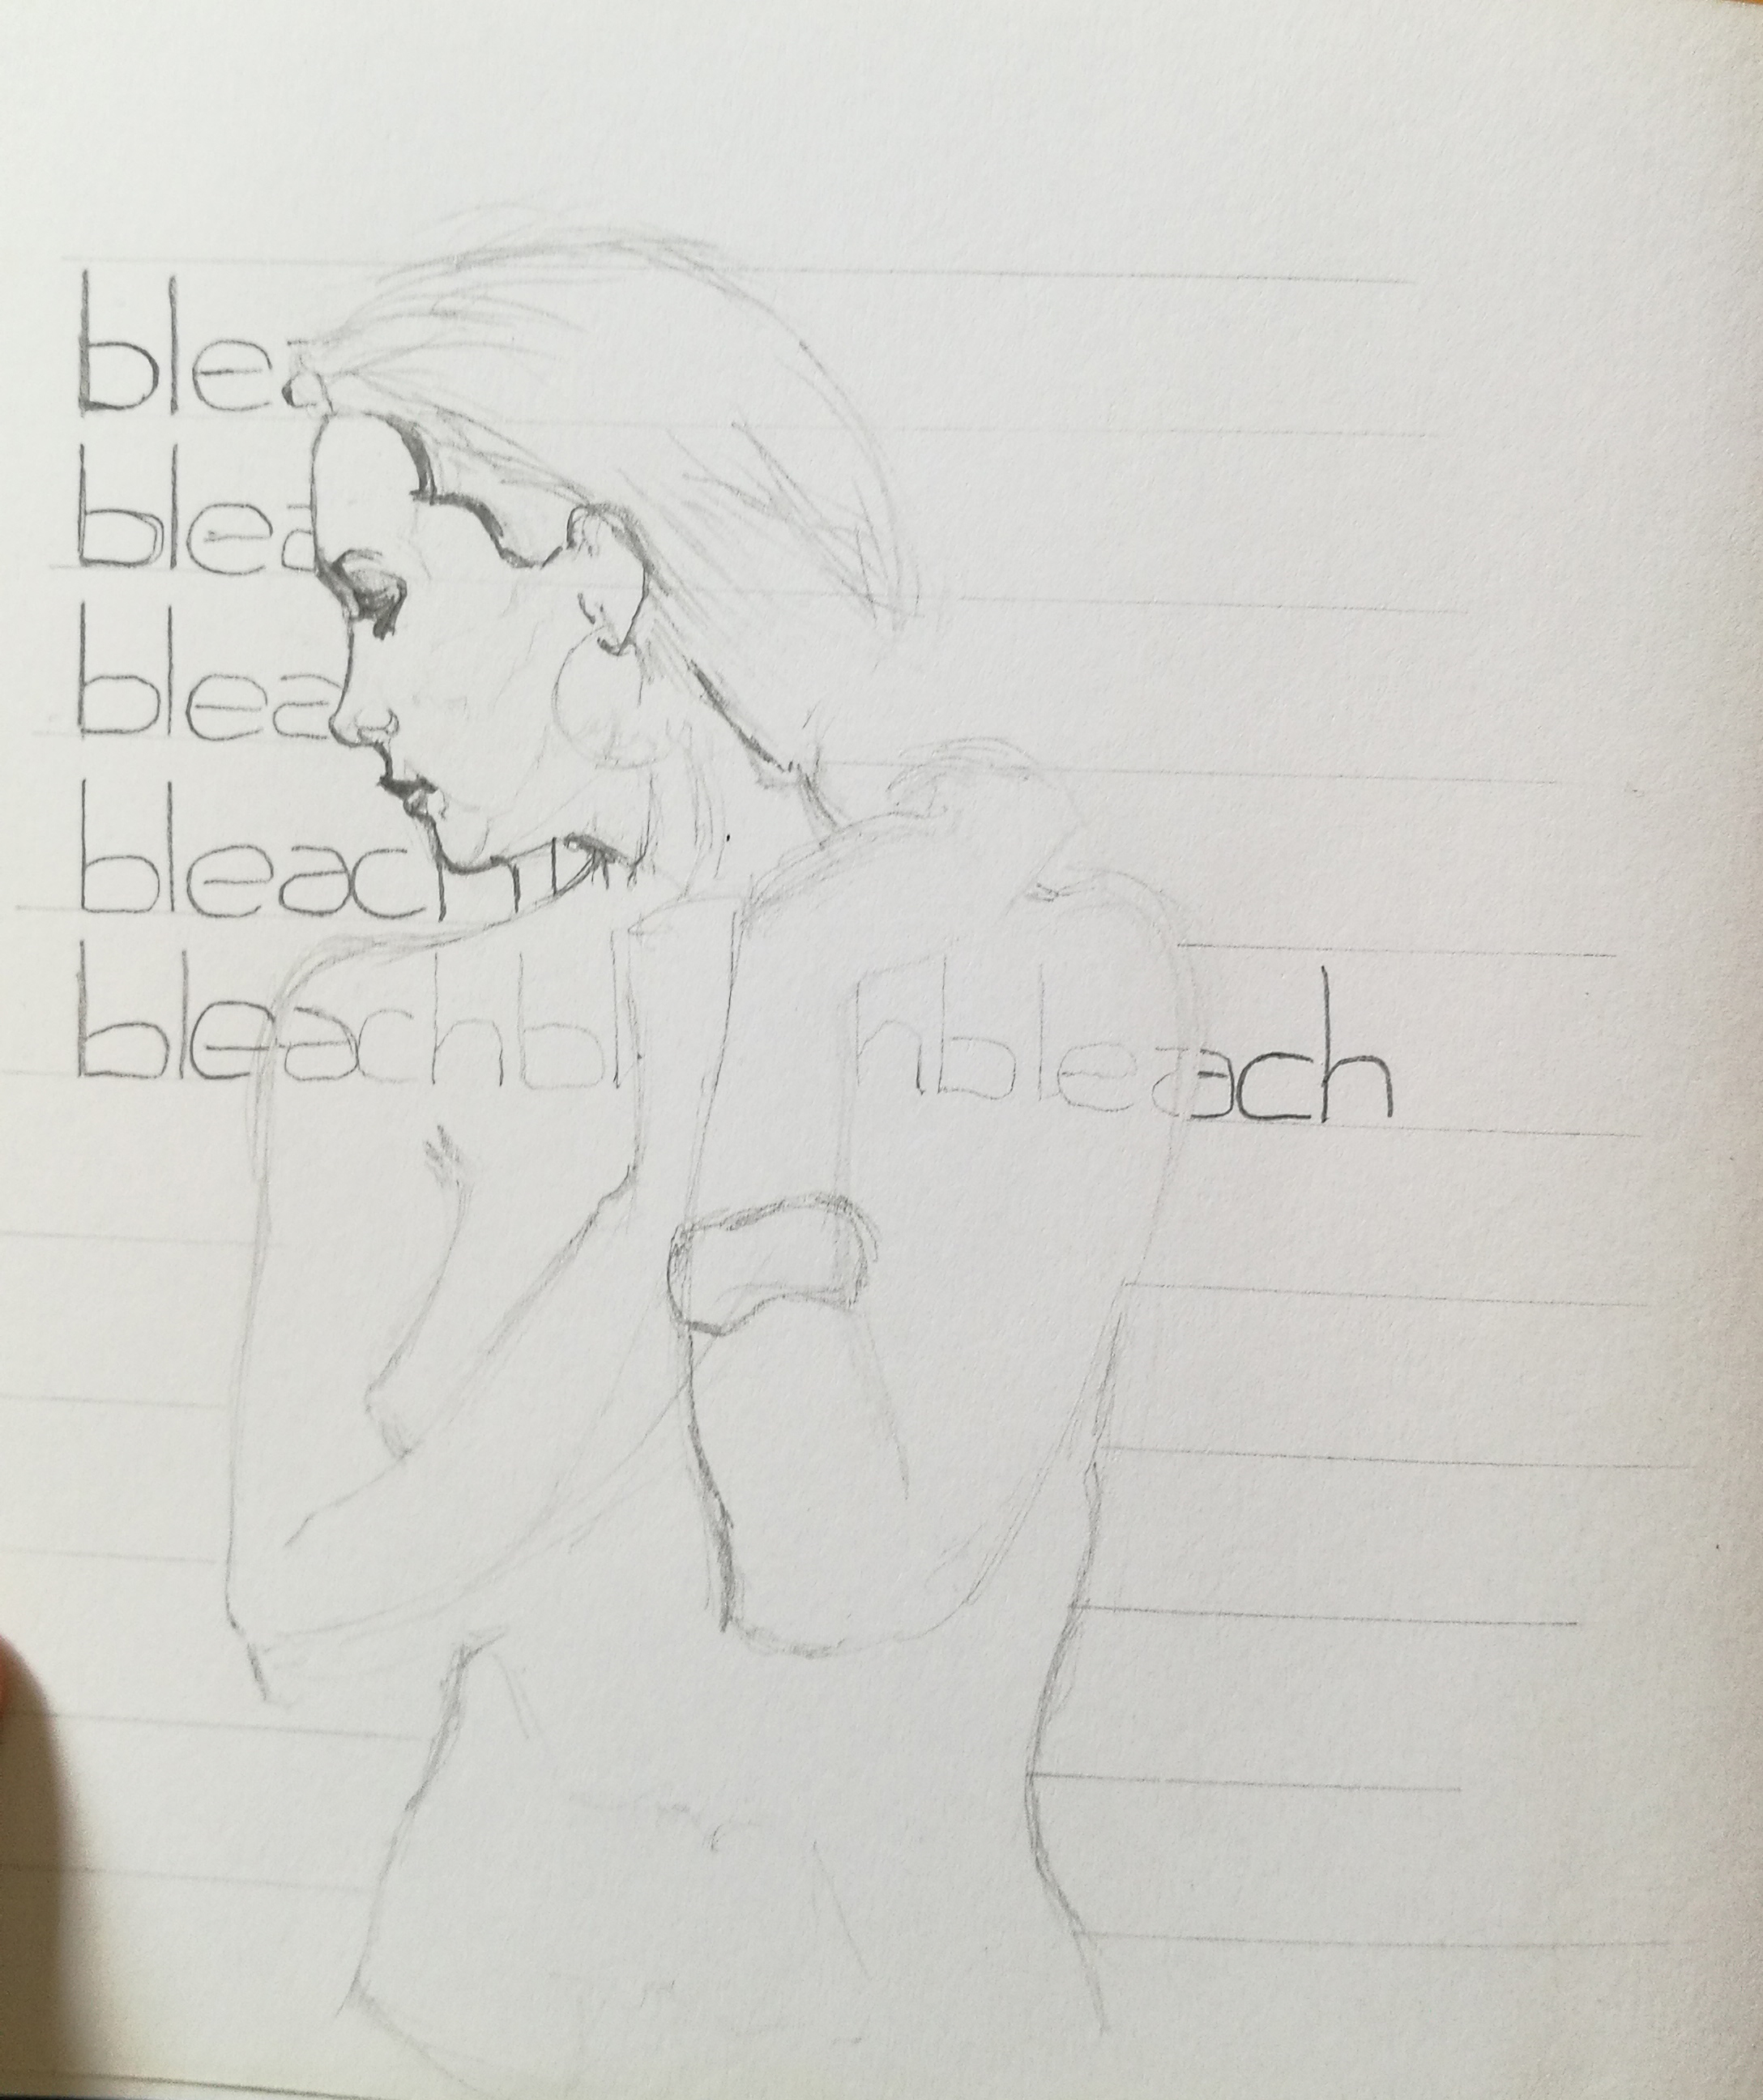 blea
blea
blea
bleach
bleachbl hbleach